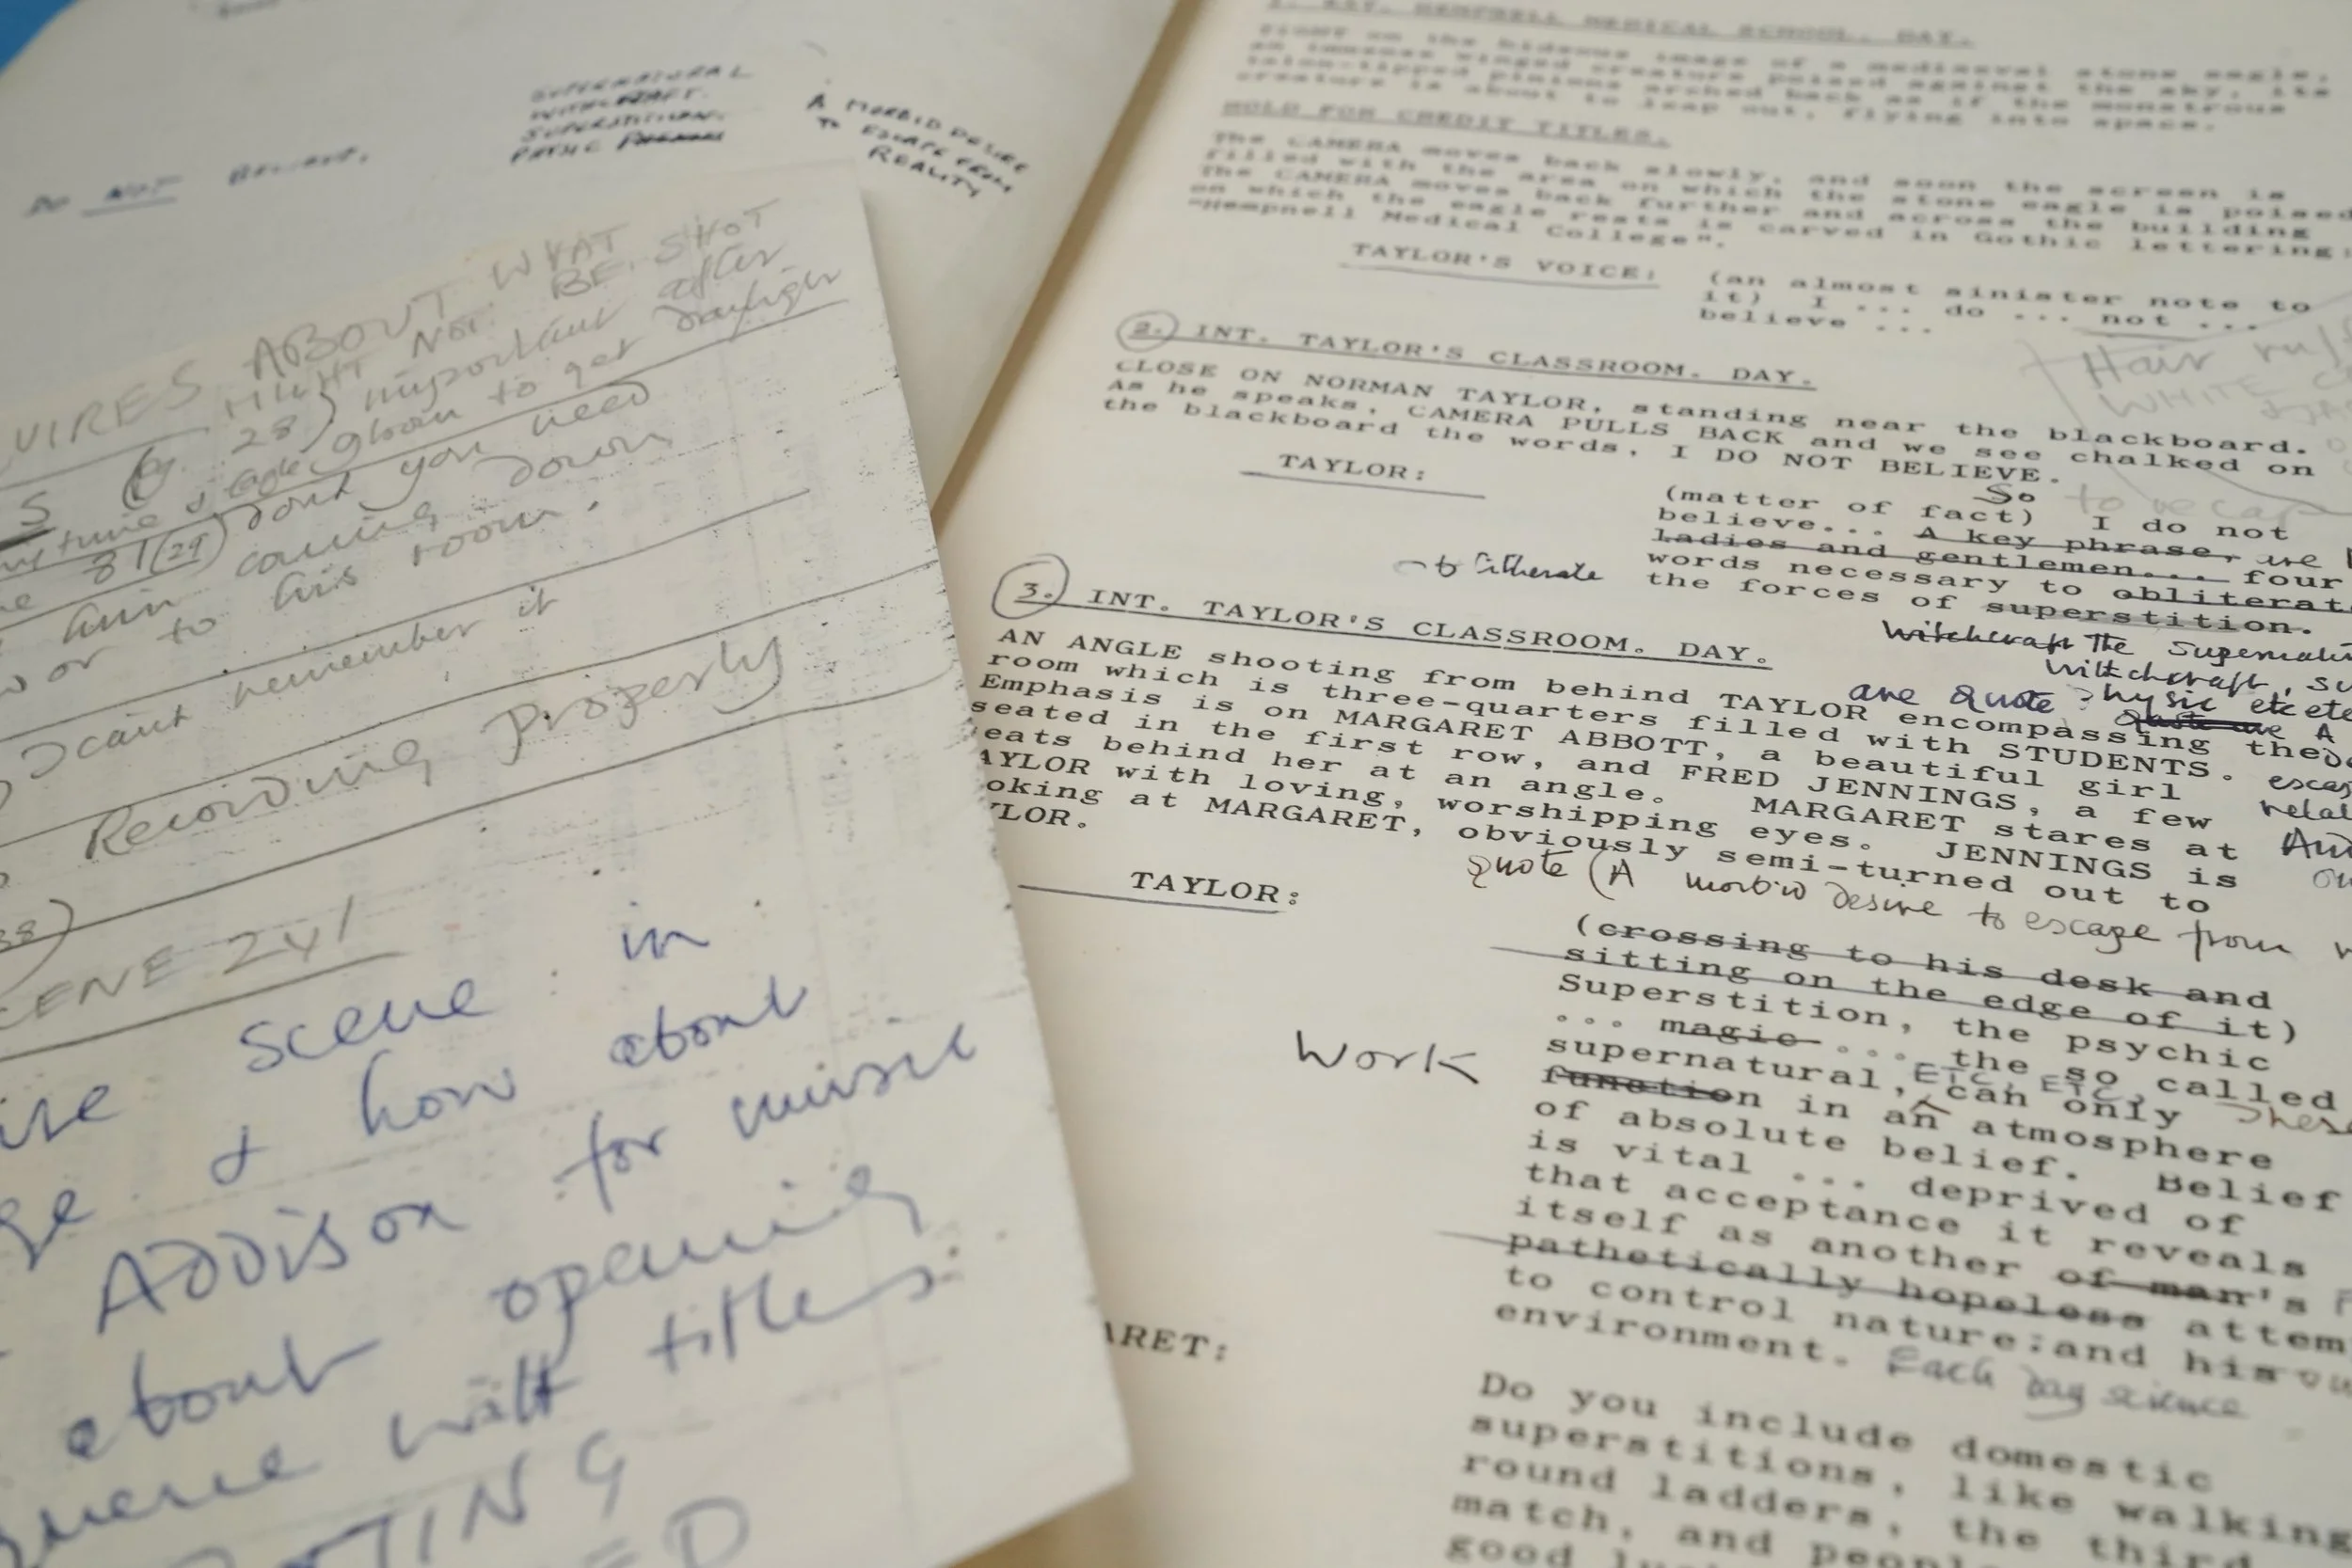 SUPERNATURAL
WITCHCRAFT.
SUPERSTITION.
PHYSIC
A MORBID DESIRE
TO ESCAPE FROM
REALITY
DO NOT BELIEVE.
VIRES ABOUT WHAT
MIGHT NOT BE SHOT
28) important after
to get
81(29) dont you need
him coming down
or to his room.
I cant remember it
Recording properly
38)
CENE 241
scene in
ge. & how about
Addison for music
about opening
quence with titles
TING
ED
1. EXT. HEMPNELL MEDICAL SCHOOL. DAY.
TIGHT on the hideous image of a mediaeval stone eagle,
an immense winged creature poised against the sky, its
talon-tipped pinions arched back as if the monstrous
creature is about to leap out, flying into space.
HOLD FOR CREDIT TITLES.
The CAMERA moves back slowly, and soon the screen is
filled with the area on which the stone eagle is poised
The CAMERA moves back further and across the building
on which the eagle rests is carved in Gothic lettering:
"Hempnell Medical College".
TAYLOR'S VOICE:
(an almost sinister note to
it) I ... do ... not ...
believe ...
Hair
WHITE
2. INT. TAYLOR'S CLASSROOM. DAY.
CLOSE ON NORMAN TAYLOR, standing near the blackboard.
As he speaks, CAMERA PULLS BACK and we see chalked on
the blackboard the words, I DO NOT BELIEVE.
TAYLOR:
So to recap
(matter of fact) I do not
believe... A key phrase, we
ladies and gentlemen... four
words necessary to obliterat
the forces of superstition.
witchcraft The Supernatu
witchcraft, su
are quote Physic etcete
quote are A
escap
relat
And
3. INT. TAYLOR'S CLASSROOM. DAY.
AN ANGLE shooting from behind TAYLOR encompassing the
room which is three-quarters filled with STUDENTS.
Emphasis is on MARGARET ABBOTT, a beautiful girl
seated in the first row, and FRED JENNINGS, a few
eats behind her at an angle. MARGARET stares at
AYLOR with loving, worshipping eyes. JENNINGS is
oking at MARGARET, obviously semi-turned out to
YLOR.
quote (A morbid desire to escape from
TAYLOR:
(crossing to his desk and
sitting on the edge of it)
Superstition, the psychic
... magic ... the so called
supernatural, ETC, ETC, can only These
Work
function in an atmosphere
of absolute belief. Belief
is vital ... deprived of
that acceptance it reveals
itself as another of man's
pathetically hopeless attem
to control nature:and his ow
environment. Each day science
ARET:
Do you include domestic
superstitions, like walking
round ladders, the third
match, and people
good lu